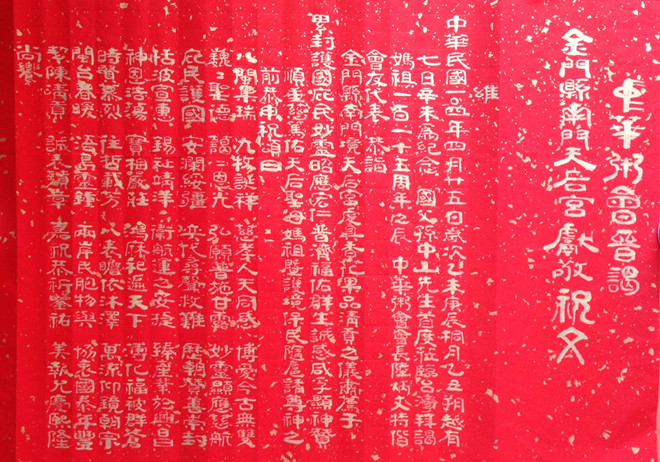 中華粥會晉謁
金門縣南門天后宮獻敬祝文
維
中華民國一百四年四月廿五日歲次乙未庚辰桐月乙丑朔越有
七日辛未為紀念 國父孫中山先生首度蒞臨台灣拜謁
媽祖一百一十五周年之辰 中華粥會會長陸炳文特偕
會友代表 恭詣
金門縣南門境天后宮虔具香花果品清責之儀肅薦于
眾封護國庇民妙靈昭應宏仁普濟福佑群生誠感咸孚顯神贊
順垂慈篤佑天后聖母媽祖暨護境保民蔭庇諸尊神之
前恭申祝頌曰
八閩集瑞 九牧誕祥 慈孝人天同感 博愛今古無雙
巍巍聖德 謁謁恩光 弘願普地甘露 妙靈顯應慈航
庇民護國 安瀾綏疆 尋聲救難 歷朝 善 封
恬波宣惠 錫祉靖洋 衛航運之安堤 臻產業於興昌
神恩浩蕩 寶相嚴莊 鴻庥祀遍天下 德化福被群倉
時贊慕烈 往哲載方 八表瞻依沐澤 萬流仰鏡朝宗
閩台春暖 浯島靈鍾 兩岸民胞物與 協表國泰年豐
絜陳清責 詠表賴章 嘉祝恭祈繁祐 美報允慶熙隆
尚饗